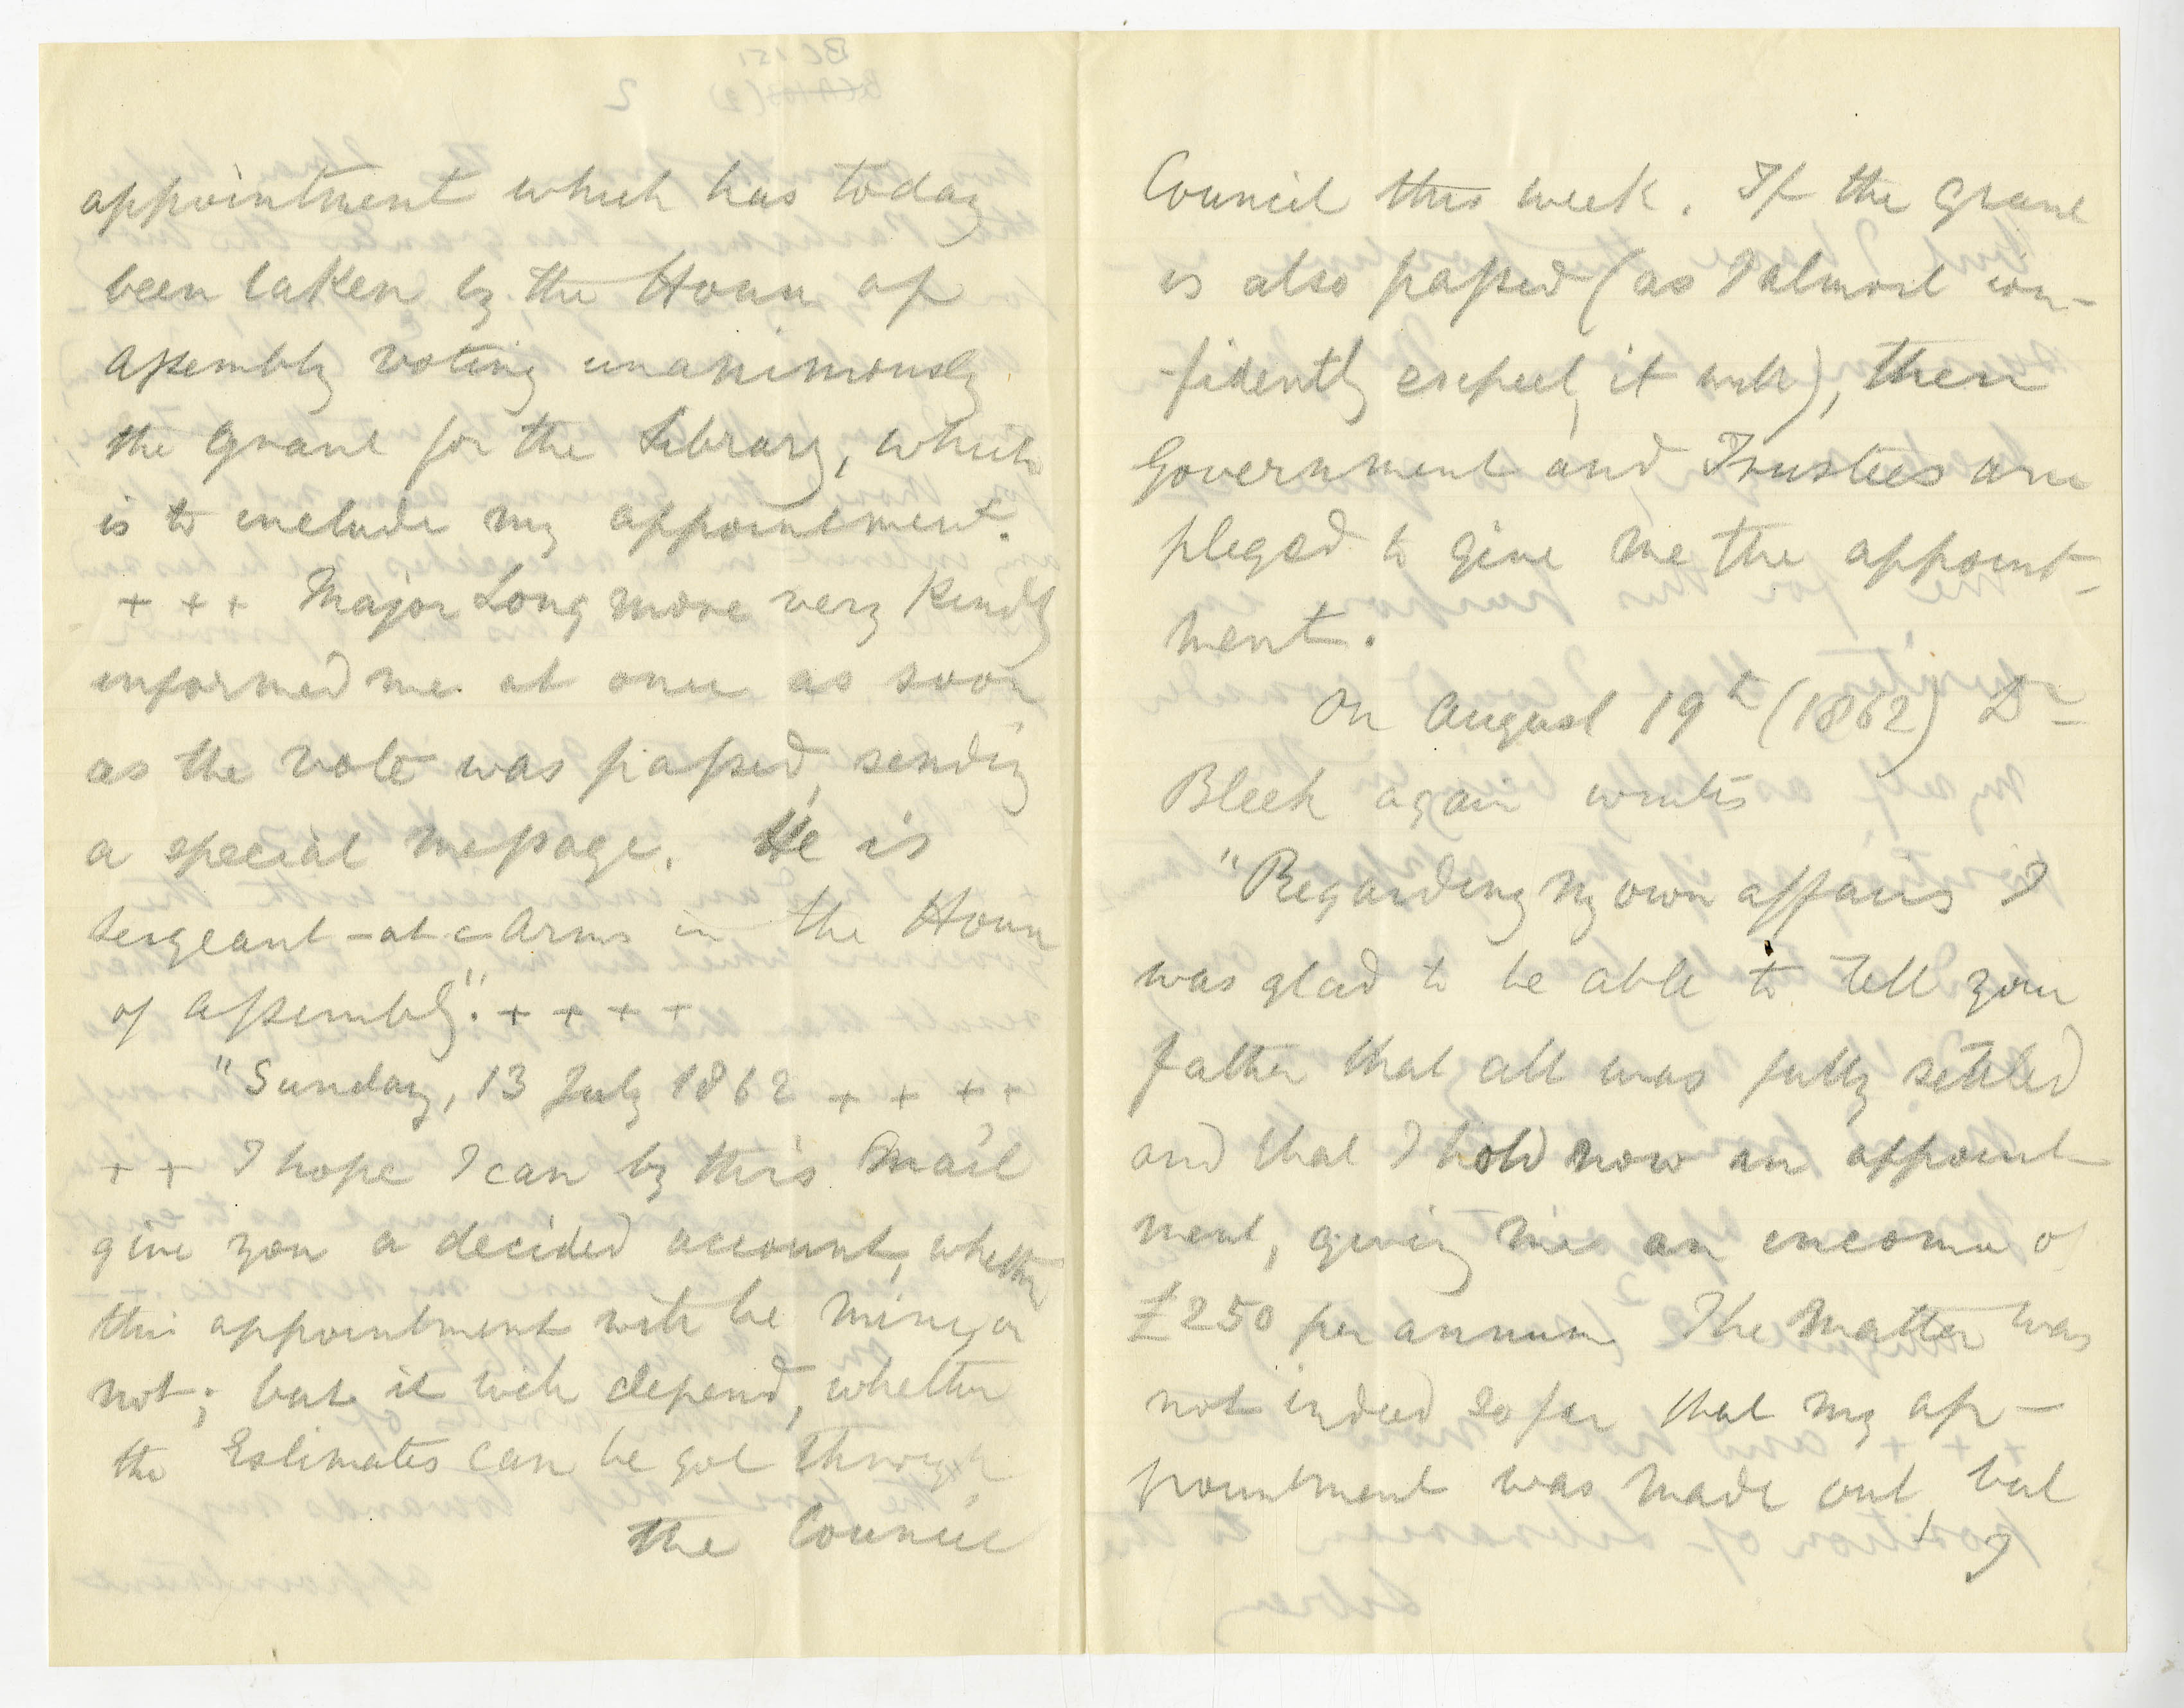 appointment which has today
been taken by the House of
Assembly voting unanimously
the grant for the Library, which
is to include my appointment.
+ + + Major Longmore very kindly
informed me at once as soon
as the vote was passed, sending
a special message. He is
Sergeant-at-Arms in the House
of Assembly". + + + +
"Sunday, 13 July 1862 + + + +
+ + I hope I can by this Mail
give you a decided account, whether
this appointment will be mine, or
not; but it will depend, whether
the Estimates can be got through
the Council
Council this week. If the grant
is also passed (as I almost con-
-fidently expect, it will), then
Government and Trustees are
pleged to give me the appoint-
ment.
On August 19th (1862) Dr
Bleek again writes
"Regarding my own affairs I
was glad to be able to tell your
father that all was fully settled
and that I hold now an appoint
ment, giving me an income of
£250 per annum. The matter was
not indeed so far that my ap-
pointment was made out, but
I